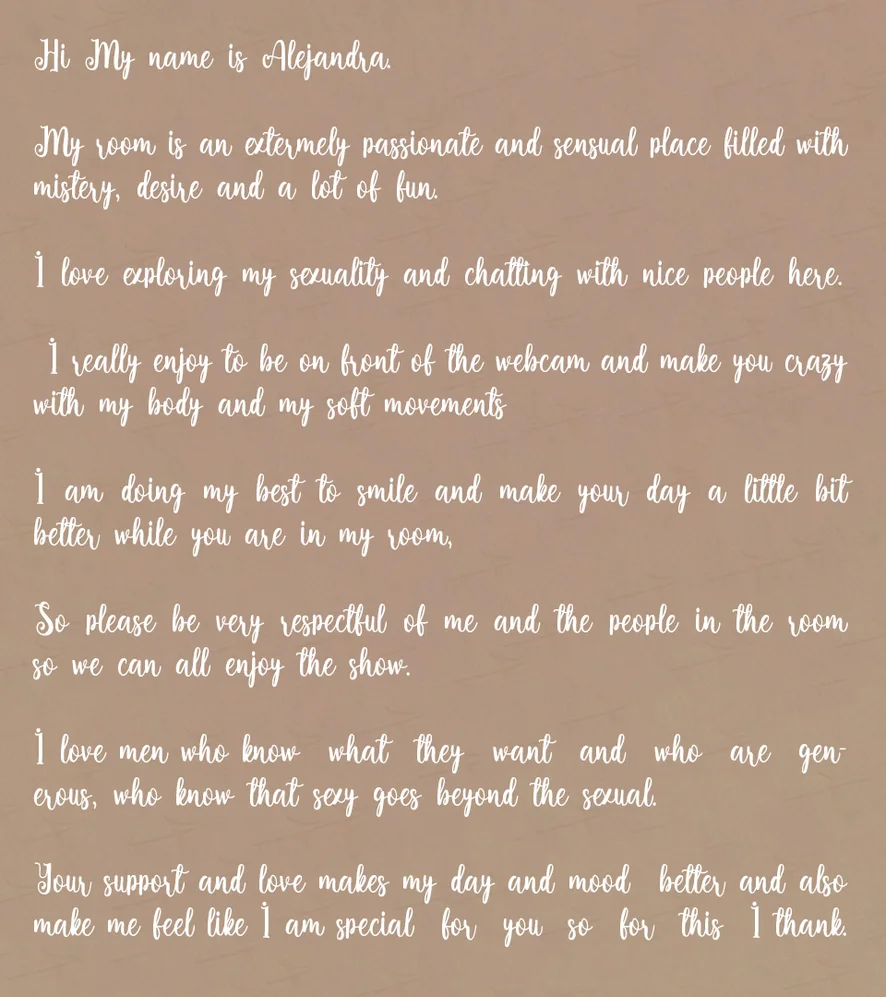 Hi My name is Alejandra.
My room is an extermely passionate and sensual place filled with
mistery, desire and a lot of fun.
I love exploring my sexuality and chatting with nice people here.
I really enjoy to be on front of the webcam and make you crazy
with my body and my soft movements
I am doing my best to smile and make your day a little bit
better while you are in my room,
So please be very respectful of me and the people in the room
so we can all enjoy the show.
I love men who know what they want and who are gen-
erous, who know that sexy goes beyond the sexual.
Your support and love makes my day and mood better and also
make me feel like I am special for you so for this I thank.